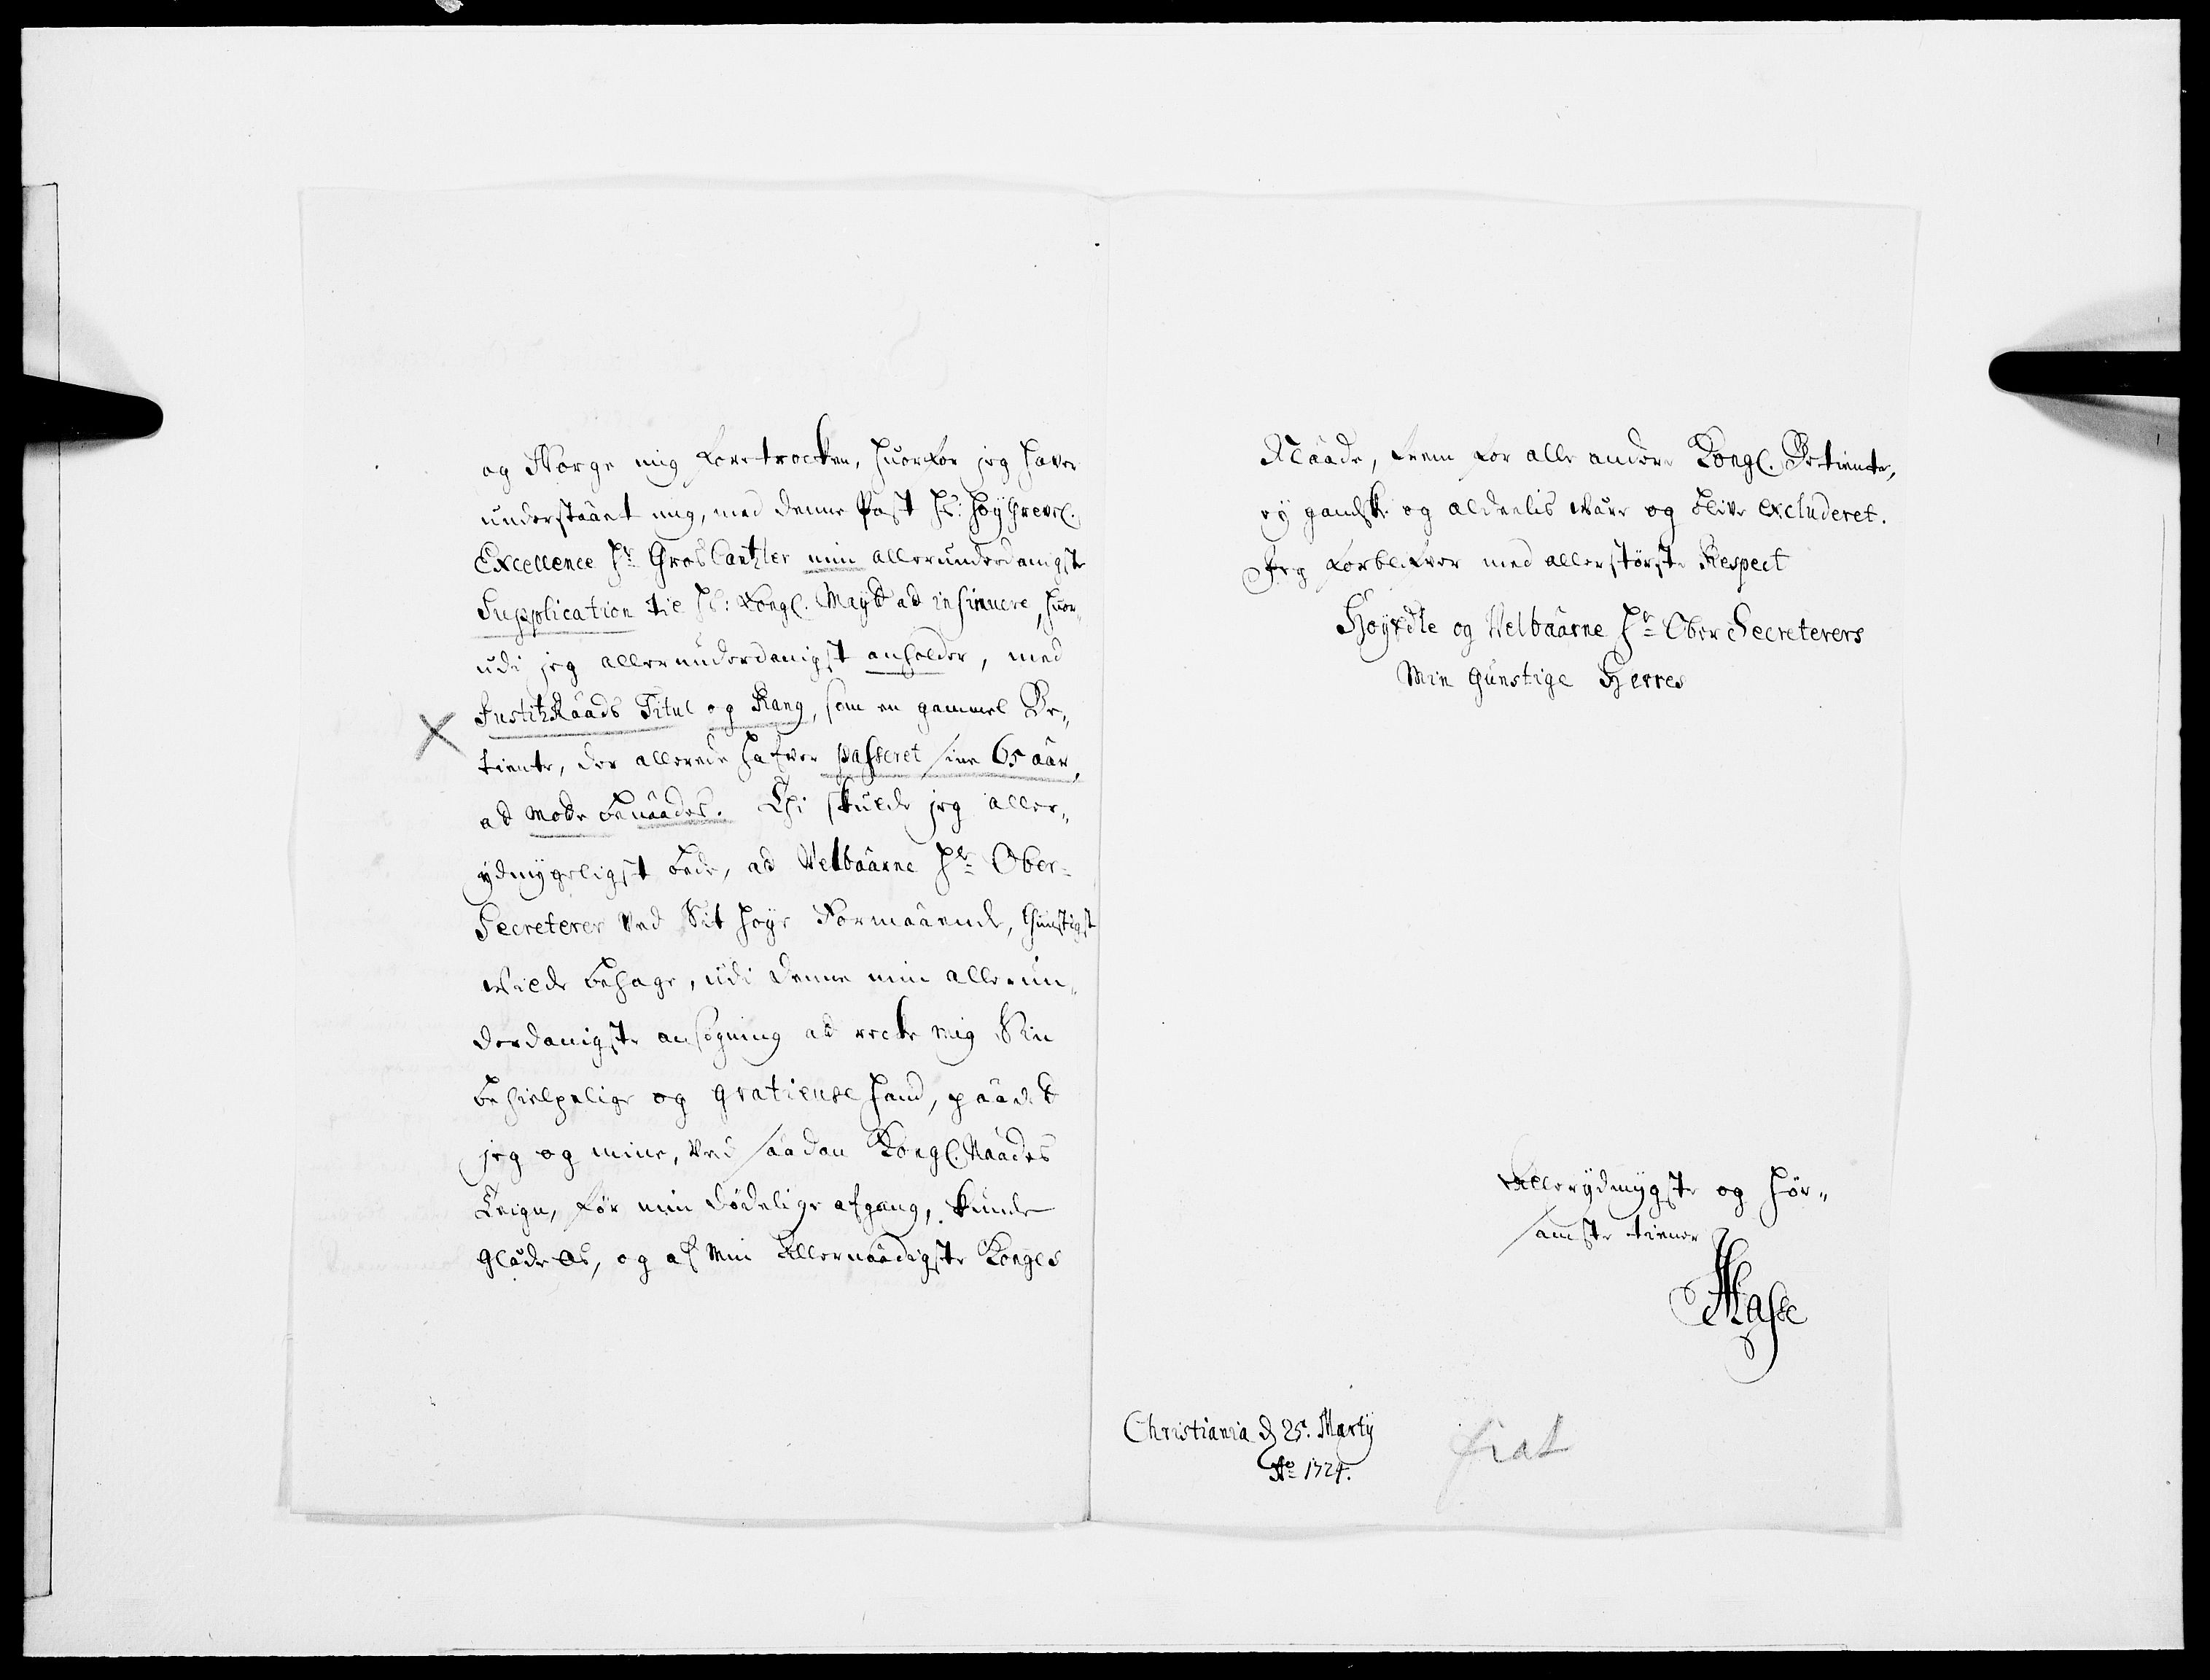 og Norge mig foretrocken, huorfor jeg haver
understaaet mig, med denne Post hs: HøyGrevel.
Excellence Hr GrosCantzler min allerunderdanigste
Supplication til hs: Kongl. Mayt ad insinuere, huor„
udi jeg allerunderdanigst anholder, med
JustitzRaads Titul og Rang, som en gammel Be„
tiente, der allerede hafver passeret sine 65 aar,
ad mode benaades. Thi skulde jeg aller„
ydmygeligst bede, ad Velbaarne Hr Ober-
Secreterer ved Sit høye Formaaende, Gunstigst
vilde behage, udi denne min allerun„
derdanigste ansøgning ad recke mig Sin
behielpelige og gratieuse haand, paa det
jeg og mine, ved saadan Kongl. Naades
Teign, før min dødelige afgang, kunde
glæde os, og af min Allernaadigste Konges
Naade, frem for alle andre Kongl. Betiente,
ey gandske og aldeelis være og blive excluderet.
Jeg forblifver med allerstørste Respect
Høyædle og Velbaarne Hr Ober Secreterers
Min Gunstige Herres
Allerydmygste og hør„
samste tiener
Christiania d 25. Marty
Ao 1724.
fiat